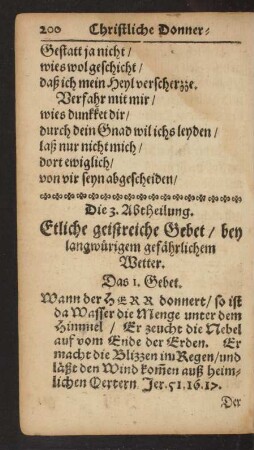 200 Christliche Donner⸗
Gestatt ja nicht /
wies wol geschicht /
daß ich mein Heyl verscherzze.
Verfahr mit mir /
wies dunkket dir /
durch dein Gnad wil ichs leyden /
laß nur nicht mich /
dort ewiglich /
von dir seyn abgescheiden /
Die 3. Abtheilung.
Etliche geistreiche Gebet / bey
langwürigem gefährlichem
Wetter.
Das 1. Gebet.
Wann der HERR donnert / so ist
da Wasser die Menge unter dem
Himmel / Er zeucht die Nebel
auf vom Ende der Erden. Er
macht die Blizzen im Regen / und
läßt den Wind kom̃en auß heim⸗
lichen Oertern Jer. 51. 16. 17.
Der